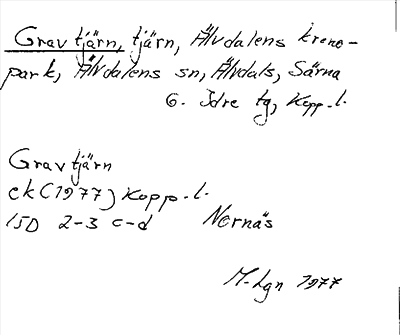 Gravtjärn, tjärn, Älvdalens krono-
park, Älvdalens sn, Älvdals, Särna
o. Idre tg, Kopp. l.
Gravtjärn
ek (1977) Kopp. l.
15D 2-3 c-d Nornäs
M-Lgn 1977